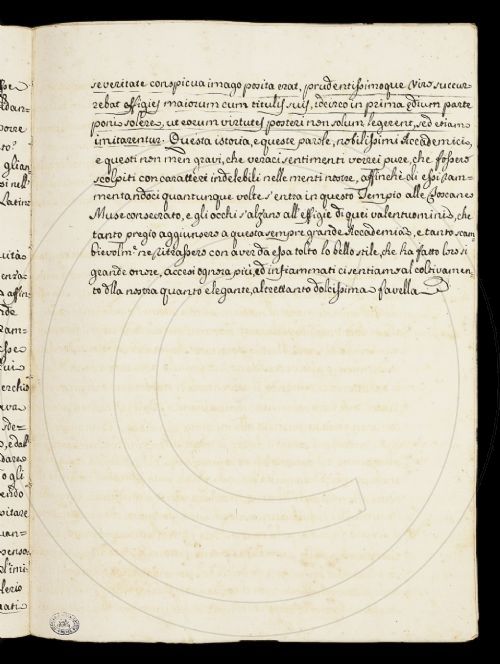 severitate conspicua imago posita erat, prudentissimoque Viro succur=
rebat effigies maiorum cum titulis suis, idcirco in prima ędium parte
poni solere, ut eorum virtutes posteri non solum legerent, sed etiam
imitarentur. Questa istoria, e queste parole, nobilissimi Accademici,
e questi non men gravi, che veraci sentimenti vorrei pure, che fossero
scolpiti con caratteri indelebili nelle menti nostre, affinchè di essi ram=
mentandoci quantunque volte s'entra in questo Tempio alle Toscane
Muse consecrato, e gli occhi s'alzano all'effigie di quei valentuomini, che
tanto pregio aggiunsero a questa sempre grande Accademia, e tanto scam=
bievolm.e ne ritrassero con aver da essa tolto lo bello stile, che ha fatto loro sì
grande onore, accesi ognora più, ed infiammati ci sentiamo al coltivamen=
to della nostra quanto elegante, altrettanto dolcissima favella